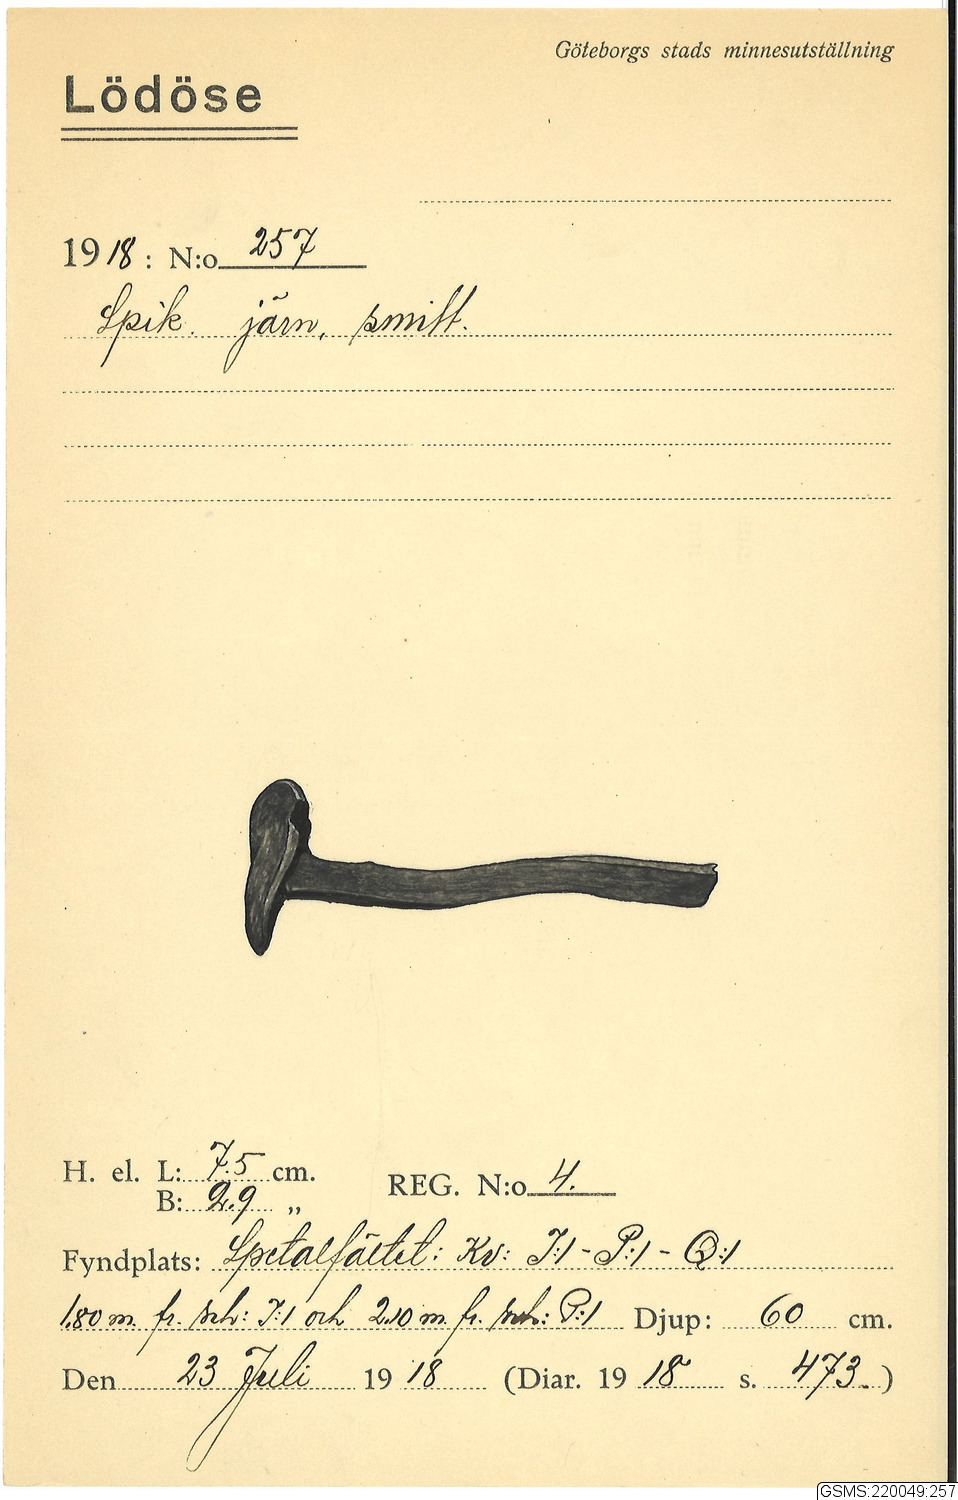 Göteborgs stads minnesutställning
Lödöse
1918: N:o 257
Spik. järn, smitt.
H. el. L: 7.5 cm.
B: 2.9 „
REG. N:o 4.
Fyndplats: Spetalfältet: Kv: I:1 - P:1 - Q:1
1.80 m. fr. sch: I:1 och 2.10 m. fr. sch: P:1 Djup: 60 cm.
Den 23 Juli 1918 (Diar. 1918 s. 473.)
GSMS:220049:257